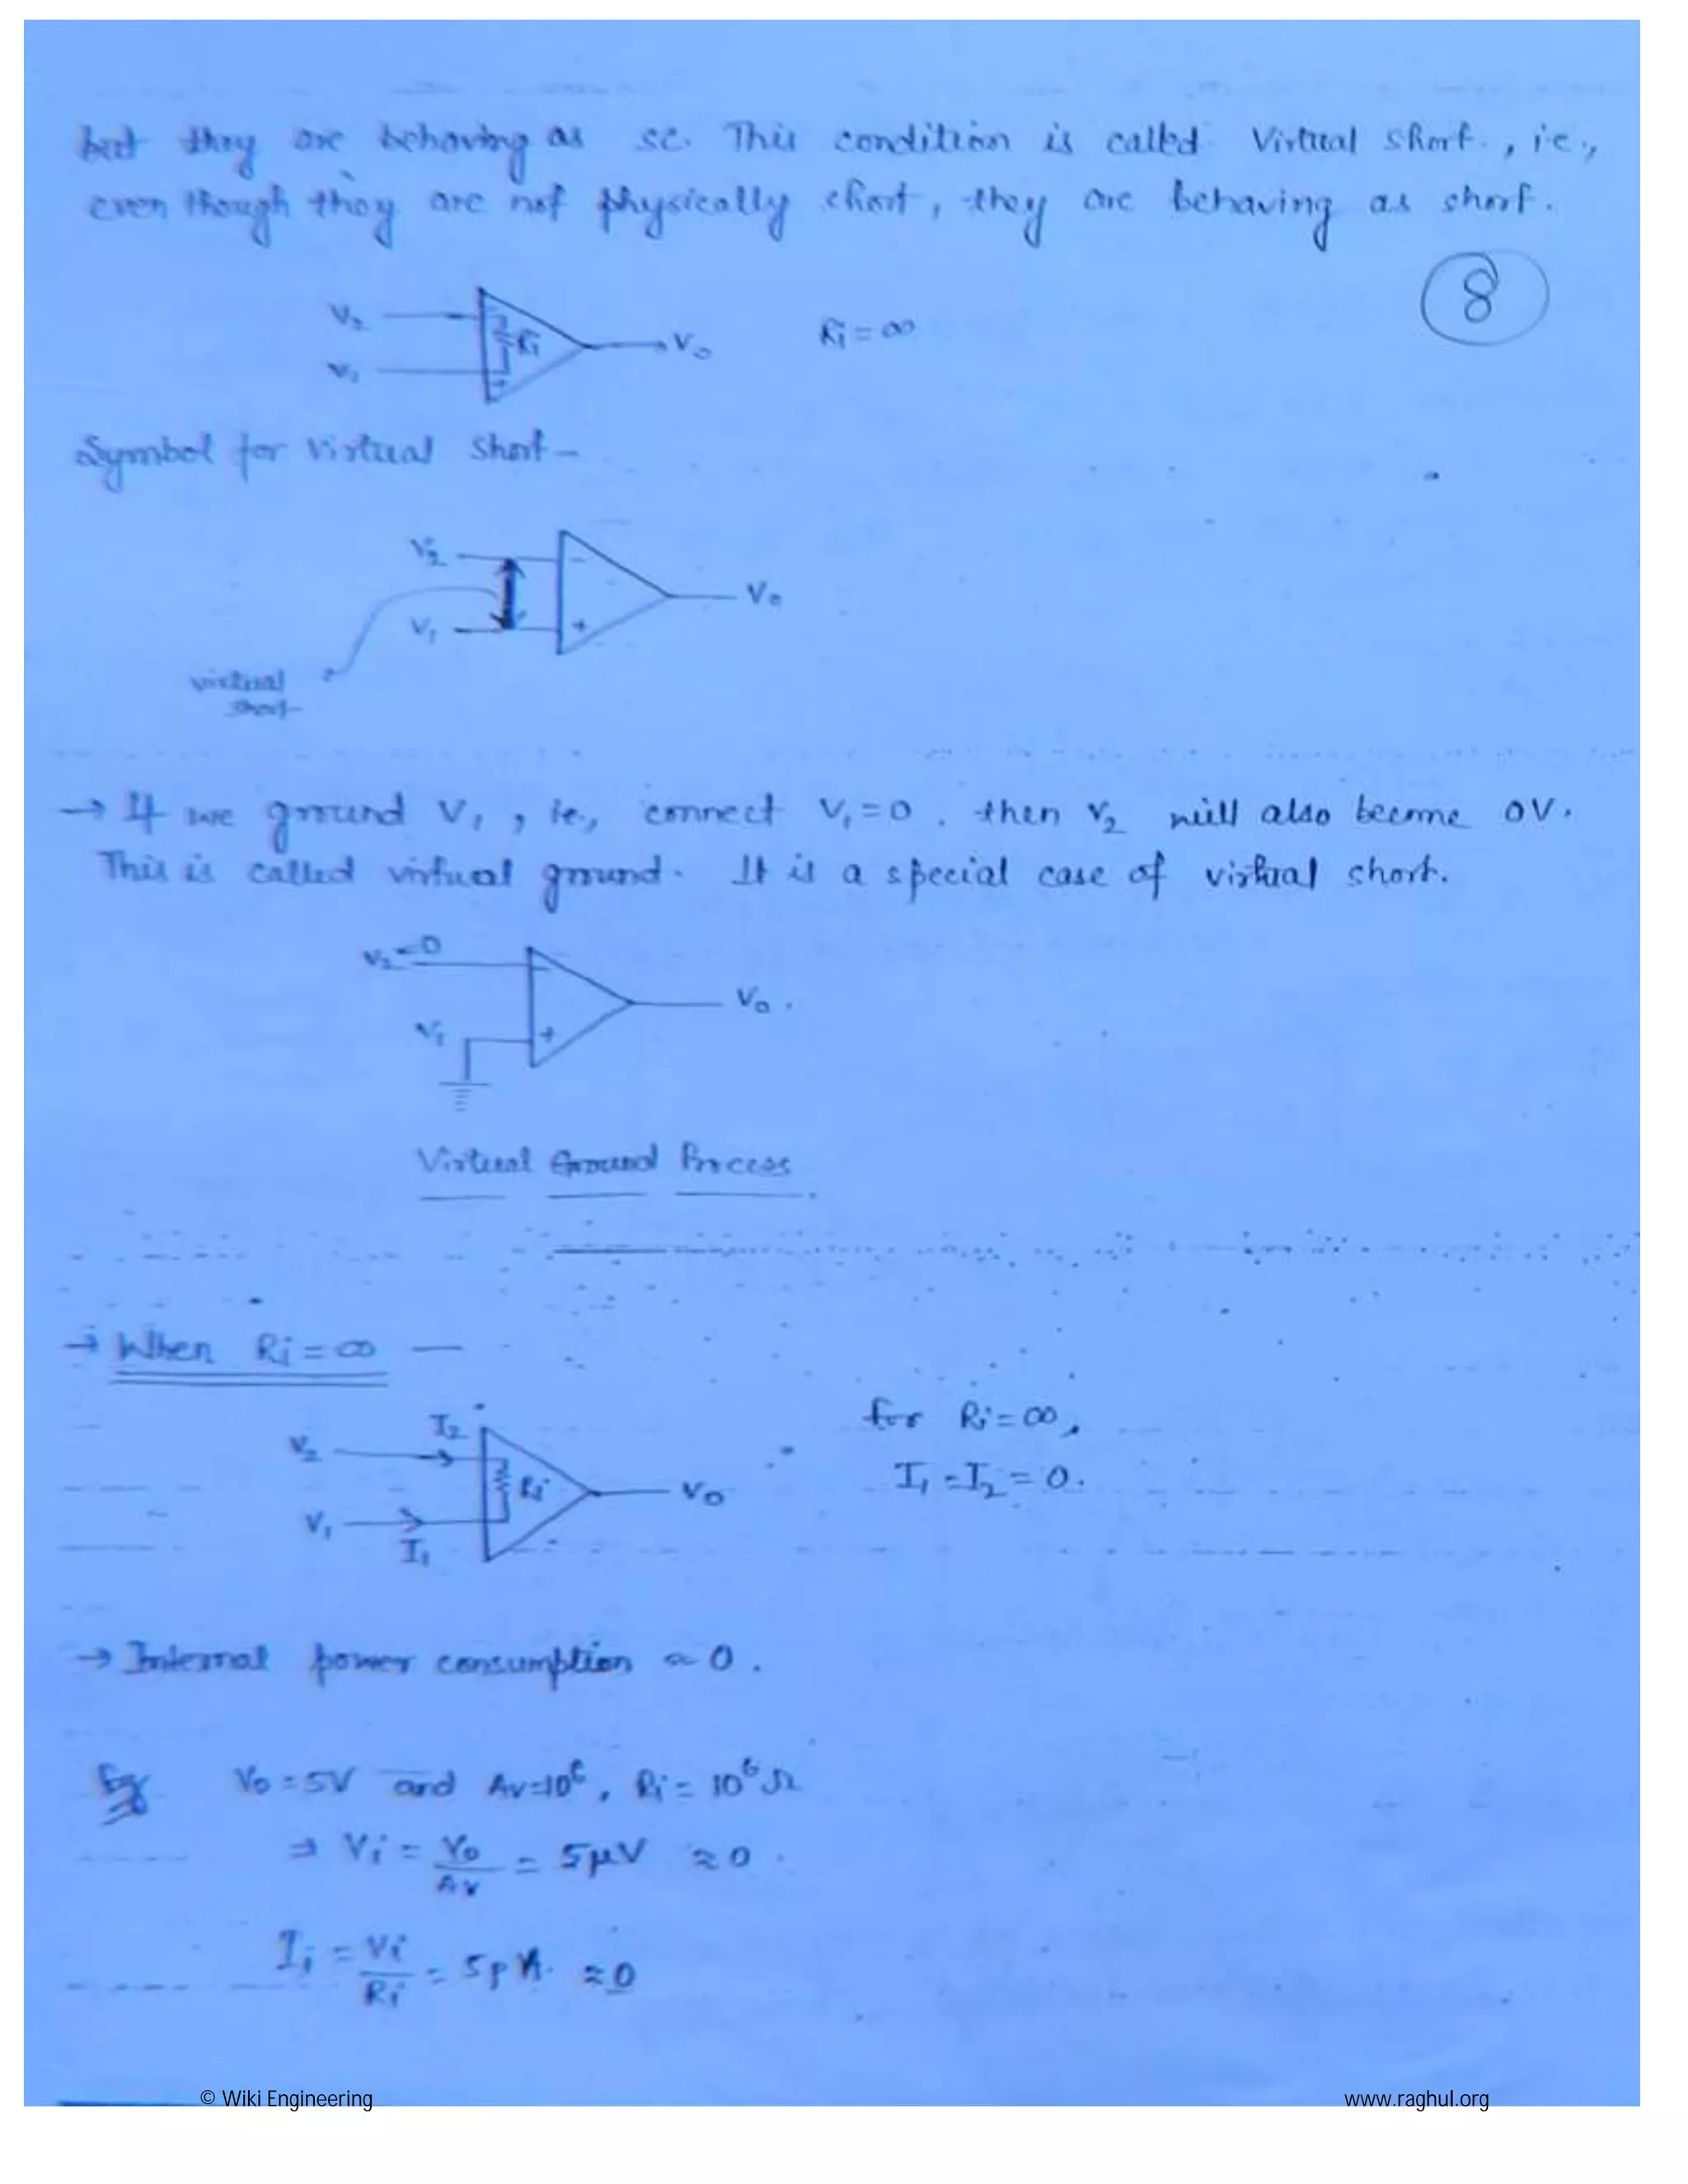 but they are behaving as sc. This condition is called Virtual short., i.e.,
even though they are not physically short, they are behaving as short.
8
V₂
Ri
V₀
Ri = ∞
V₁
+
Symbol for Virtual Short –
V₂
-
V₀
V₁
+
virtual
short
→ If we ground V₁, ie., connect V₁ = 0. then V₂ will also become 0V.
This is called virtual ground. It is a special case of virtual short.
V₂ = 0
-
V₀.
V₁
+
Virtual Ground Process
→ When Ri = ∞ —
for Ri = ∞,
I₂
V₂
I₁ = I₂ = 0.
Ri
V₀
V₁
I₁
→ Internal power consumption ≈ 0.
Eg V₀ = 5V and Av = 10⁶, Ri = 10⁶ Ω
⇒ Vi = V₀/Av = 5μV ≈ 0.
Ii = Vi/Ri = 5pA. ≈ 0
© Wiki Engineering
www.raghul.org